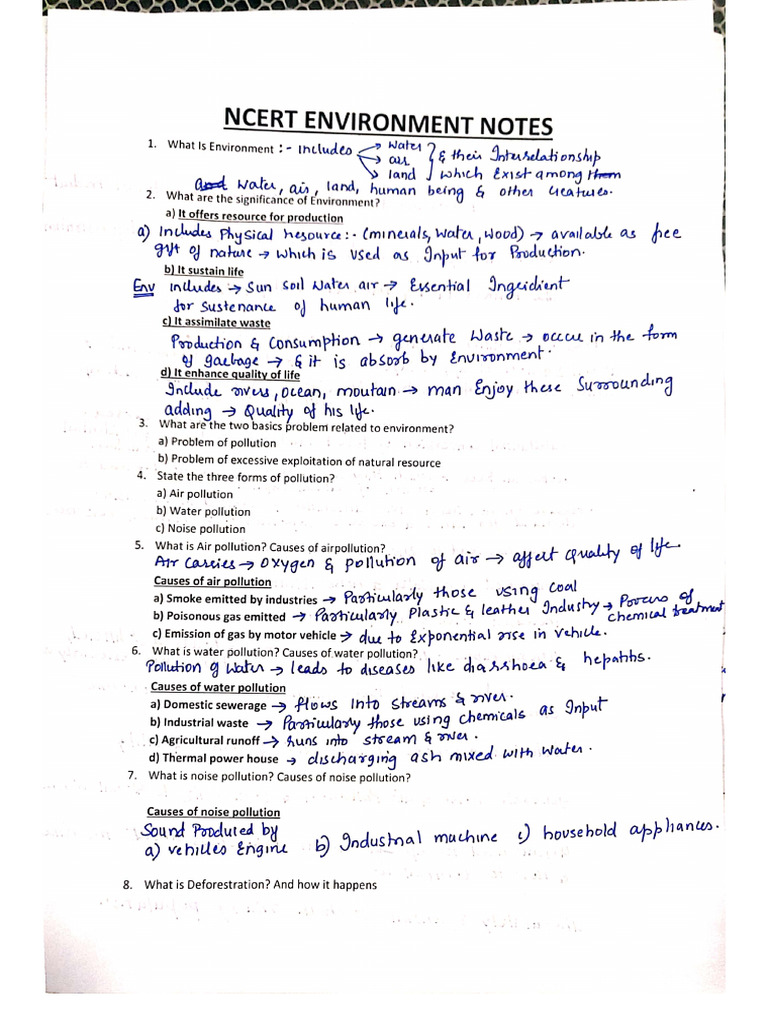 NCERT ENVIRONMENT NOTES
1. What Is Environment :- includes → water → air → land } & their Interrelationship which Exist among them
and water, air, land, human being & other creatures.
2. What are the significance of Environment?
a) It offers resource for production
a) Includes Physical resource:- (minerals, water, wood) → available as free
gift of nature → which is used as Input for Production.
b) It sustain life
Env includes → Sun soil water air → Essential Ingeidient
for sustenance of human life.
c) It assimilate waste
Production & consumption → generate waste → occur in the form
of garbage → & it is absorb by Environment.
d) It enhance quality of life
Include rivers, ocean, moutain → man Enjoy these Surrounding
adding → Quality of his life.
3. What are the two basics problem related to environment?
a) Problem of pollution
b) Problem of excessive exploitation of natural resource
4. State the three forms of pollution?
a) Air pollution
b) Water pollution
c) Noise pollution
5. What is Air pollution? Causes of airpollution?
Air carries → oxygen & pollution of air → affect quality of life.
Causes of air pollution
a) Smoke emitted by industries → Particularly those using coal
b) Poisonous gas emitted → Particularly Plastic & leather Industry → Porcess of
chemical treatment
c) Emission of gas by motor vehicle → due to Exponential rise in vehicle.
6. What is water pollution? Causes of water pollution?
Pollution of water → leads to diseases like diarrhoea & hepatits.
Causes of water pollution
a) Domestic sewerage → flows into streams & river.
b) Industrial waste → Particularly those using chemicals as Input
c) Agricultural runoff → runs into stream & river.
d) Thermal power house → discharging ash mixed with water.
7. What is noise pollution? Causes of noise pollution?
Causes of noise pollution
Sound Produced by
a) vehicles Engine b) Industrial machine c) household appliances.
8. What is Deforestration? And how it happens